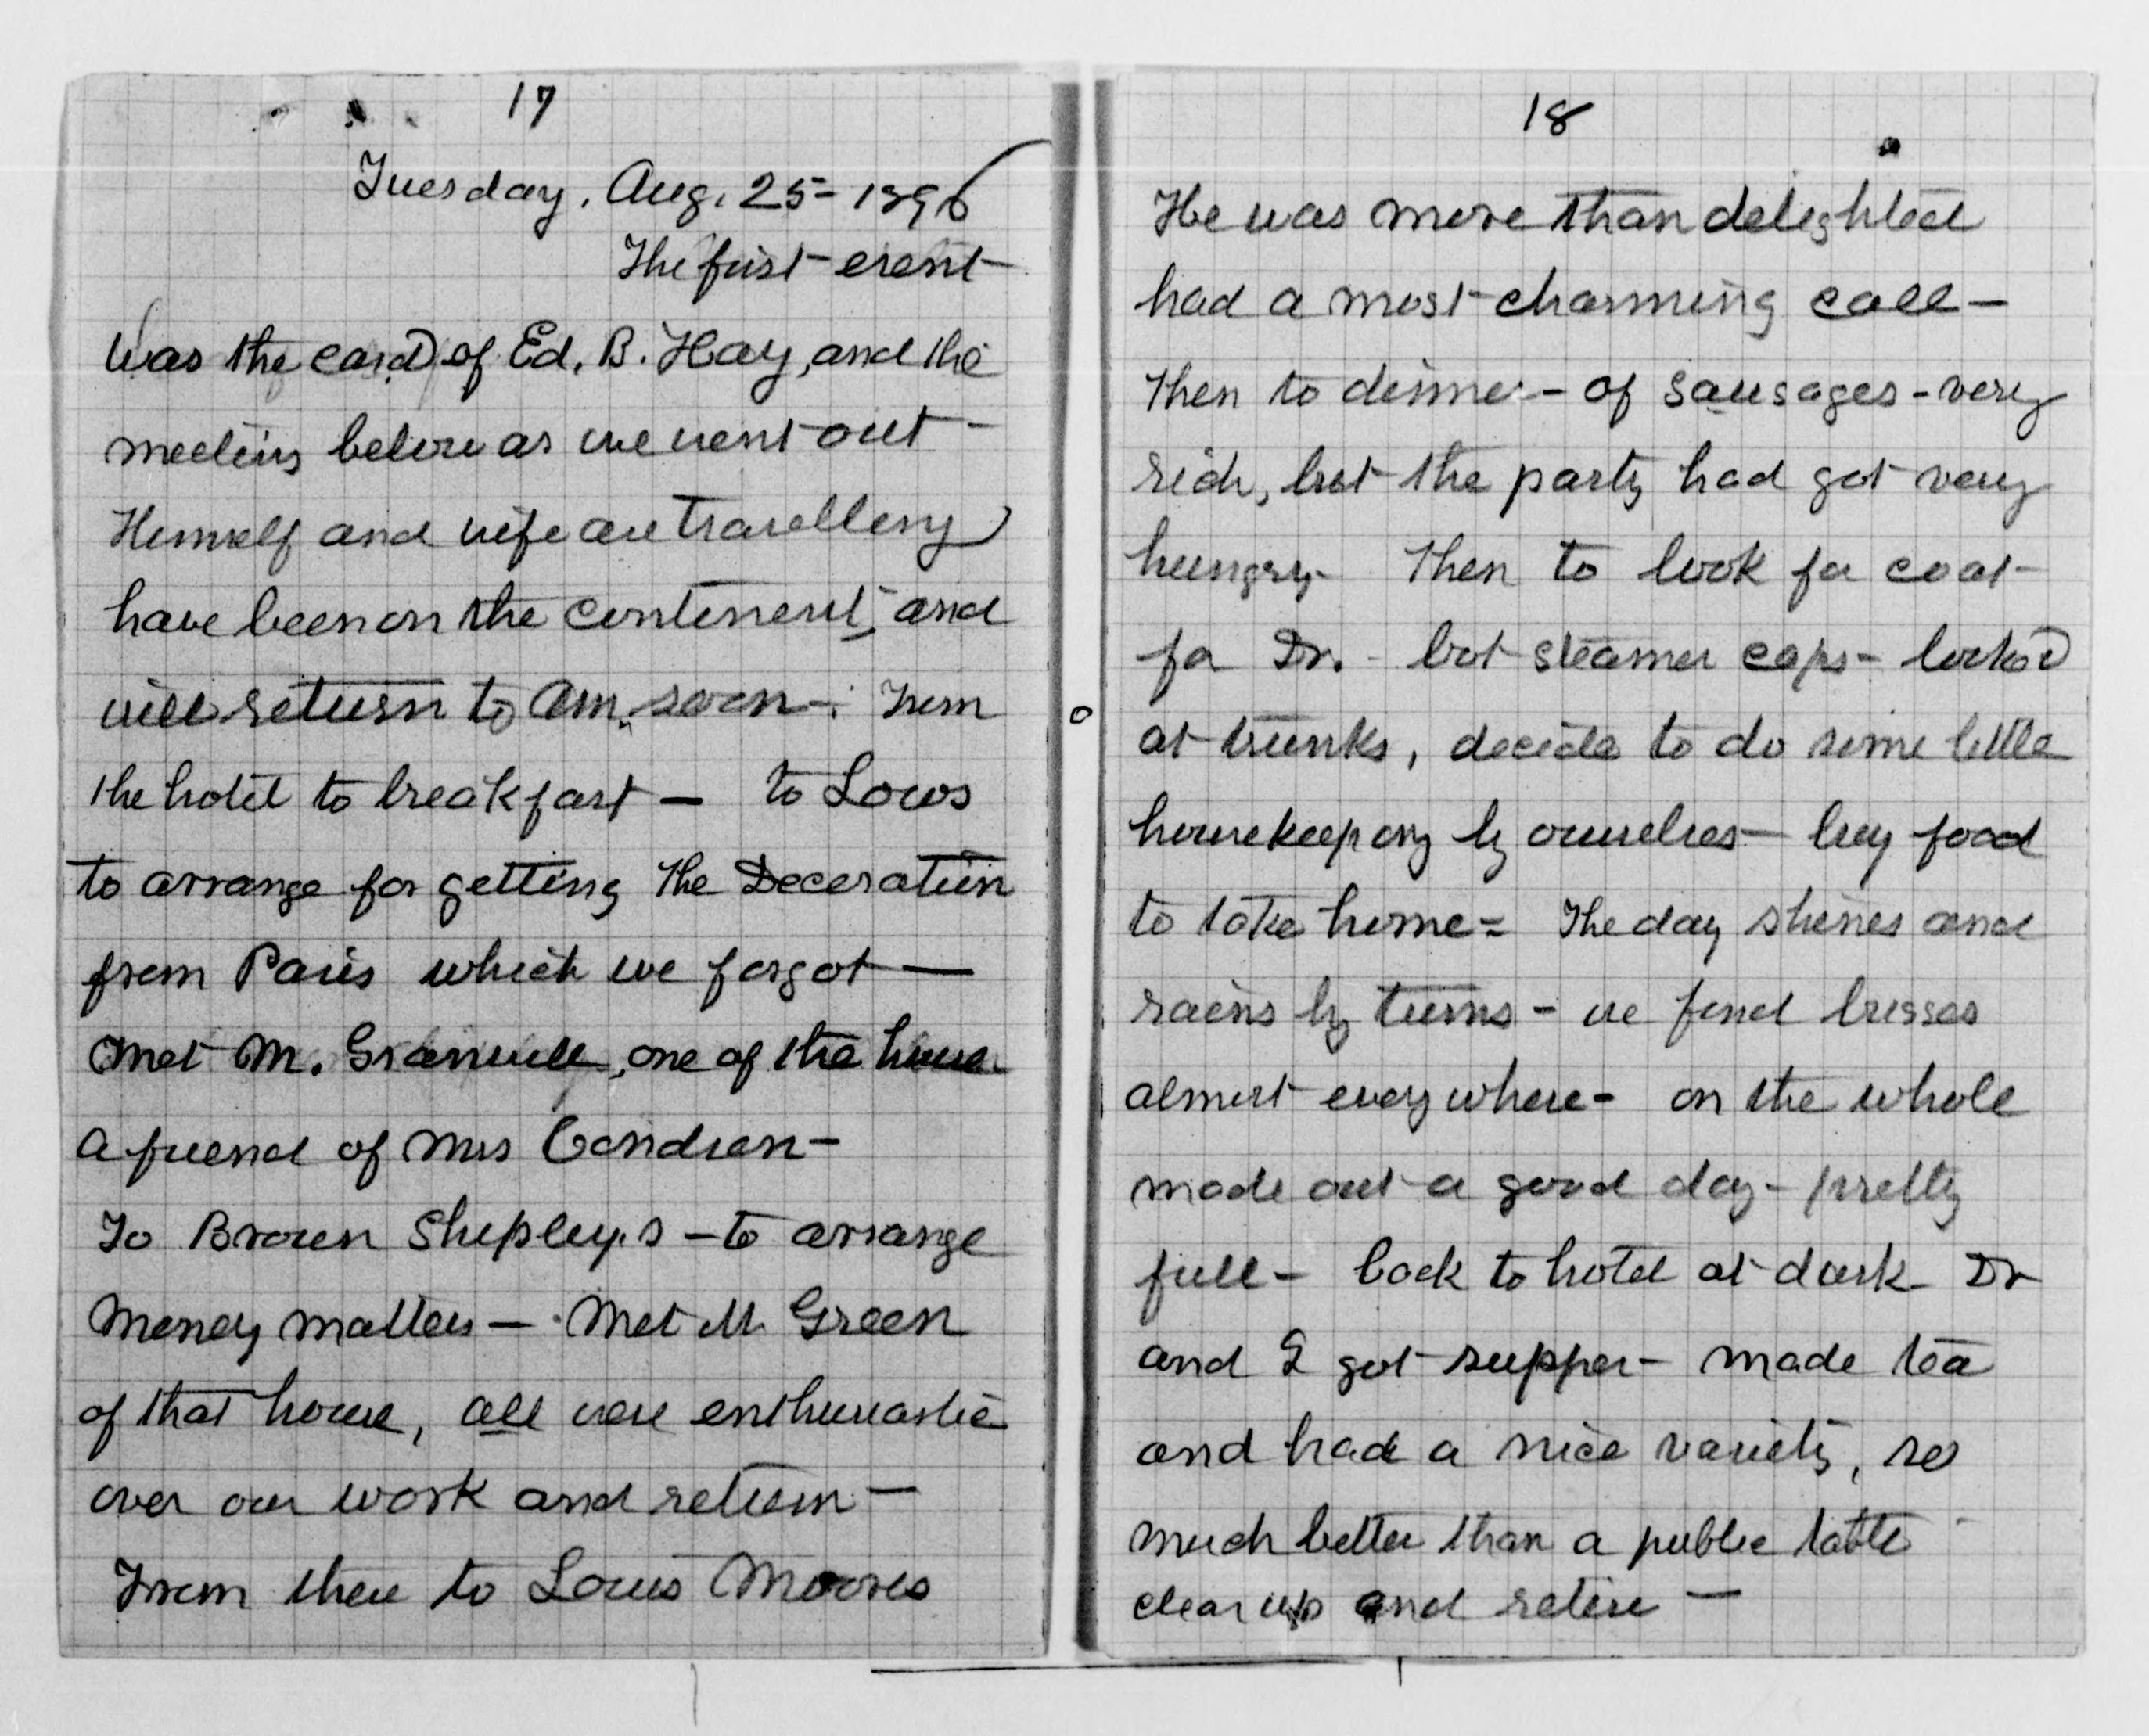 17
Tuesday. Aug. 25 - 1896
The first event
was the card of Ed. B. Hay, and the
meeting below as we went out -
Himself and wife are travelling
have been on the continent, and
will return to Am. soon - From
the hotel to breakfast - to Lows
to arrange for getting the Decoration
from Paris which we forgot -
met M. Granvill, one of the house
a friend of Mrs Condren -
To Brown Shipley.s - to arrange
money matters - Met M Green
of that house, all were enthusiastic
over our work and return -
From there to Louis Moores
18
He was more than delighted
had a most charming call -
Then to dinner - of sausages - very
rich, but the party had got very
hungry - Then to look for coat
for Dr. - bot steamer caps - looked
at trunks, decide to do some little
housekeeping by ourselves - buy food
to take home = The day shines and
rains by turns - we find busses
almost everywhere - on the whole
made out a good day - pretty
full - back to hotel at dark - Dr
and I got supper - made tea
and had a nice variety, so
much better than a public table
clear up and retire -